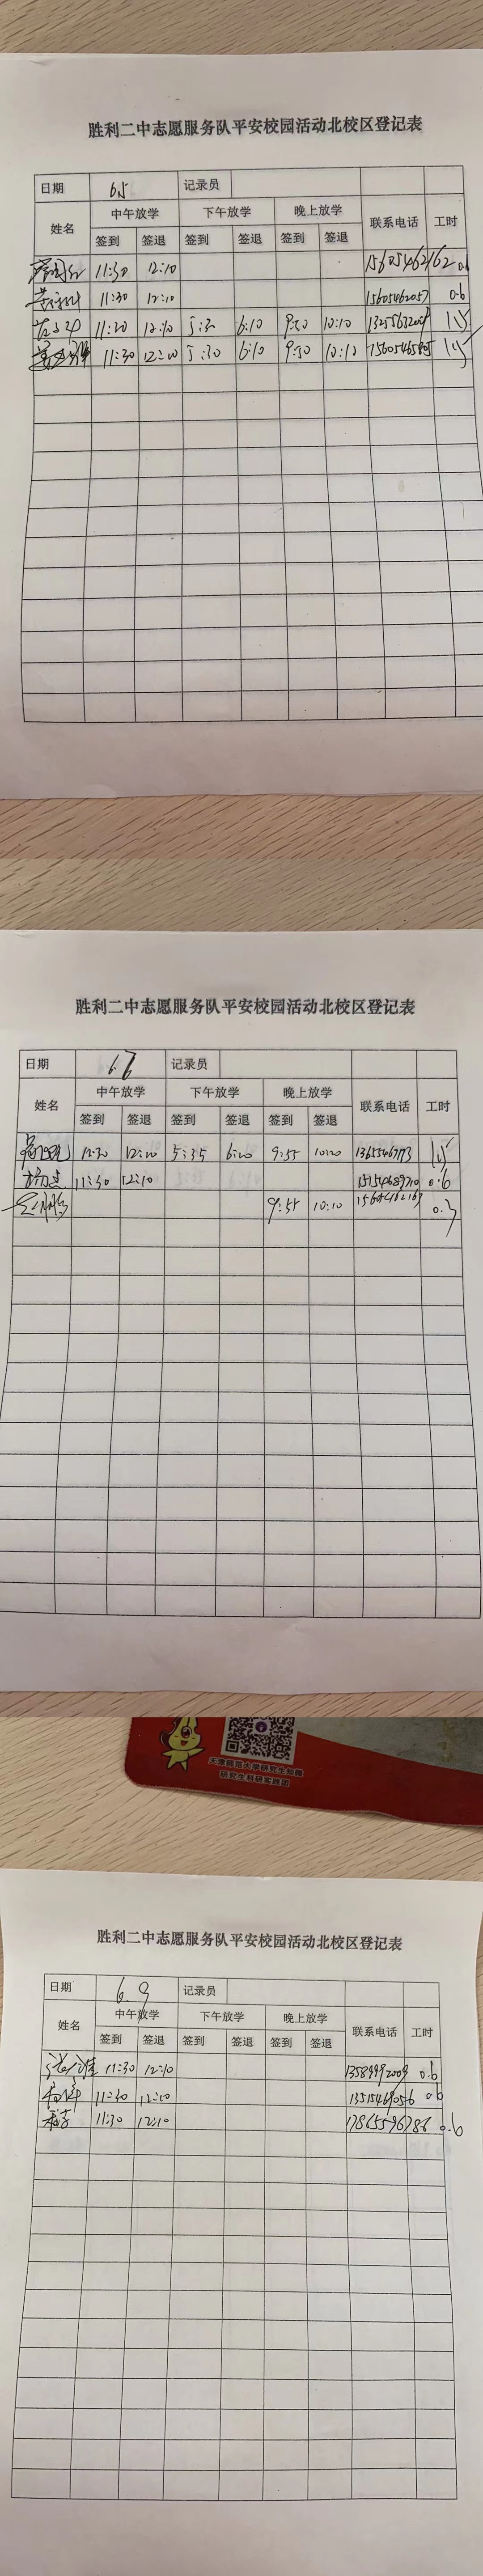 胜利二中志愿服务队平安校园活动北校区登记表
日期 6.5 记录员
姓名 中午放学 下午放学 晚上放学 联系电话 工时
签到 签退 签到 签退 签到 签退
11:30 12:10 15605462162 0.6
11:30 12:10 15605462057 0.6
11:30 12:10 5:30 6:10 9:50 10:10 1.5
11:30 12:10 5:30 6:10 9:50 10:10 1.5
胜利二中志愿服务队平安校园活动北校区登记表
日期 6.6 记录员
姓名 中午放学 下午放学 晚上放学 联系电话 工时
签到 签退 签到 签退 签到 签退
11:30 12:10 5:35 6:20 9:55 10:20 1.5
11:30 12:10 15154689710 0.6
9:55 10:10 0.3
天津师范大学研究生知网
研究生科研实践团
胜利二中志愿服务队平安校园活动北校区登记表
日期 6.9 记录员
姓名 中午放学 下午放学 晚上放学 联系电话 工时
签到 签退 签到 签退 签到 签退
11:30 12:10 13589992009 0.6
11:30 12:10 13515469056 0.6
11:30 12:10 17865596786 0.6